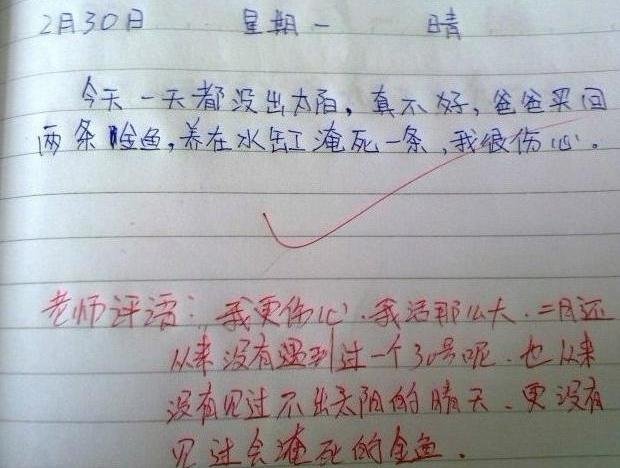 2月30日 星期一 晴
今天一天都没出太阳，真不好，爸爸买回
两条金鱼，养在水缸淹死一条，我很伤心。
老师评语：我更伤心．我活那么大．二月还
从来没有遇到过一个30号呢．也从来
没有见过不出太阳的晴天、更没有
见过会淹死的金鱼．